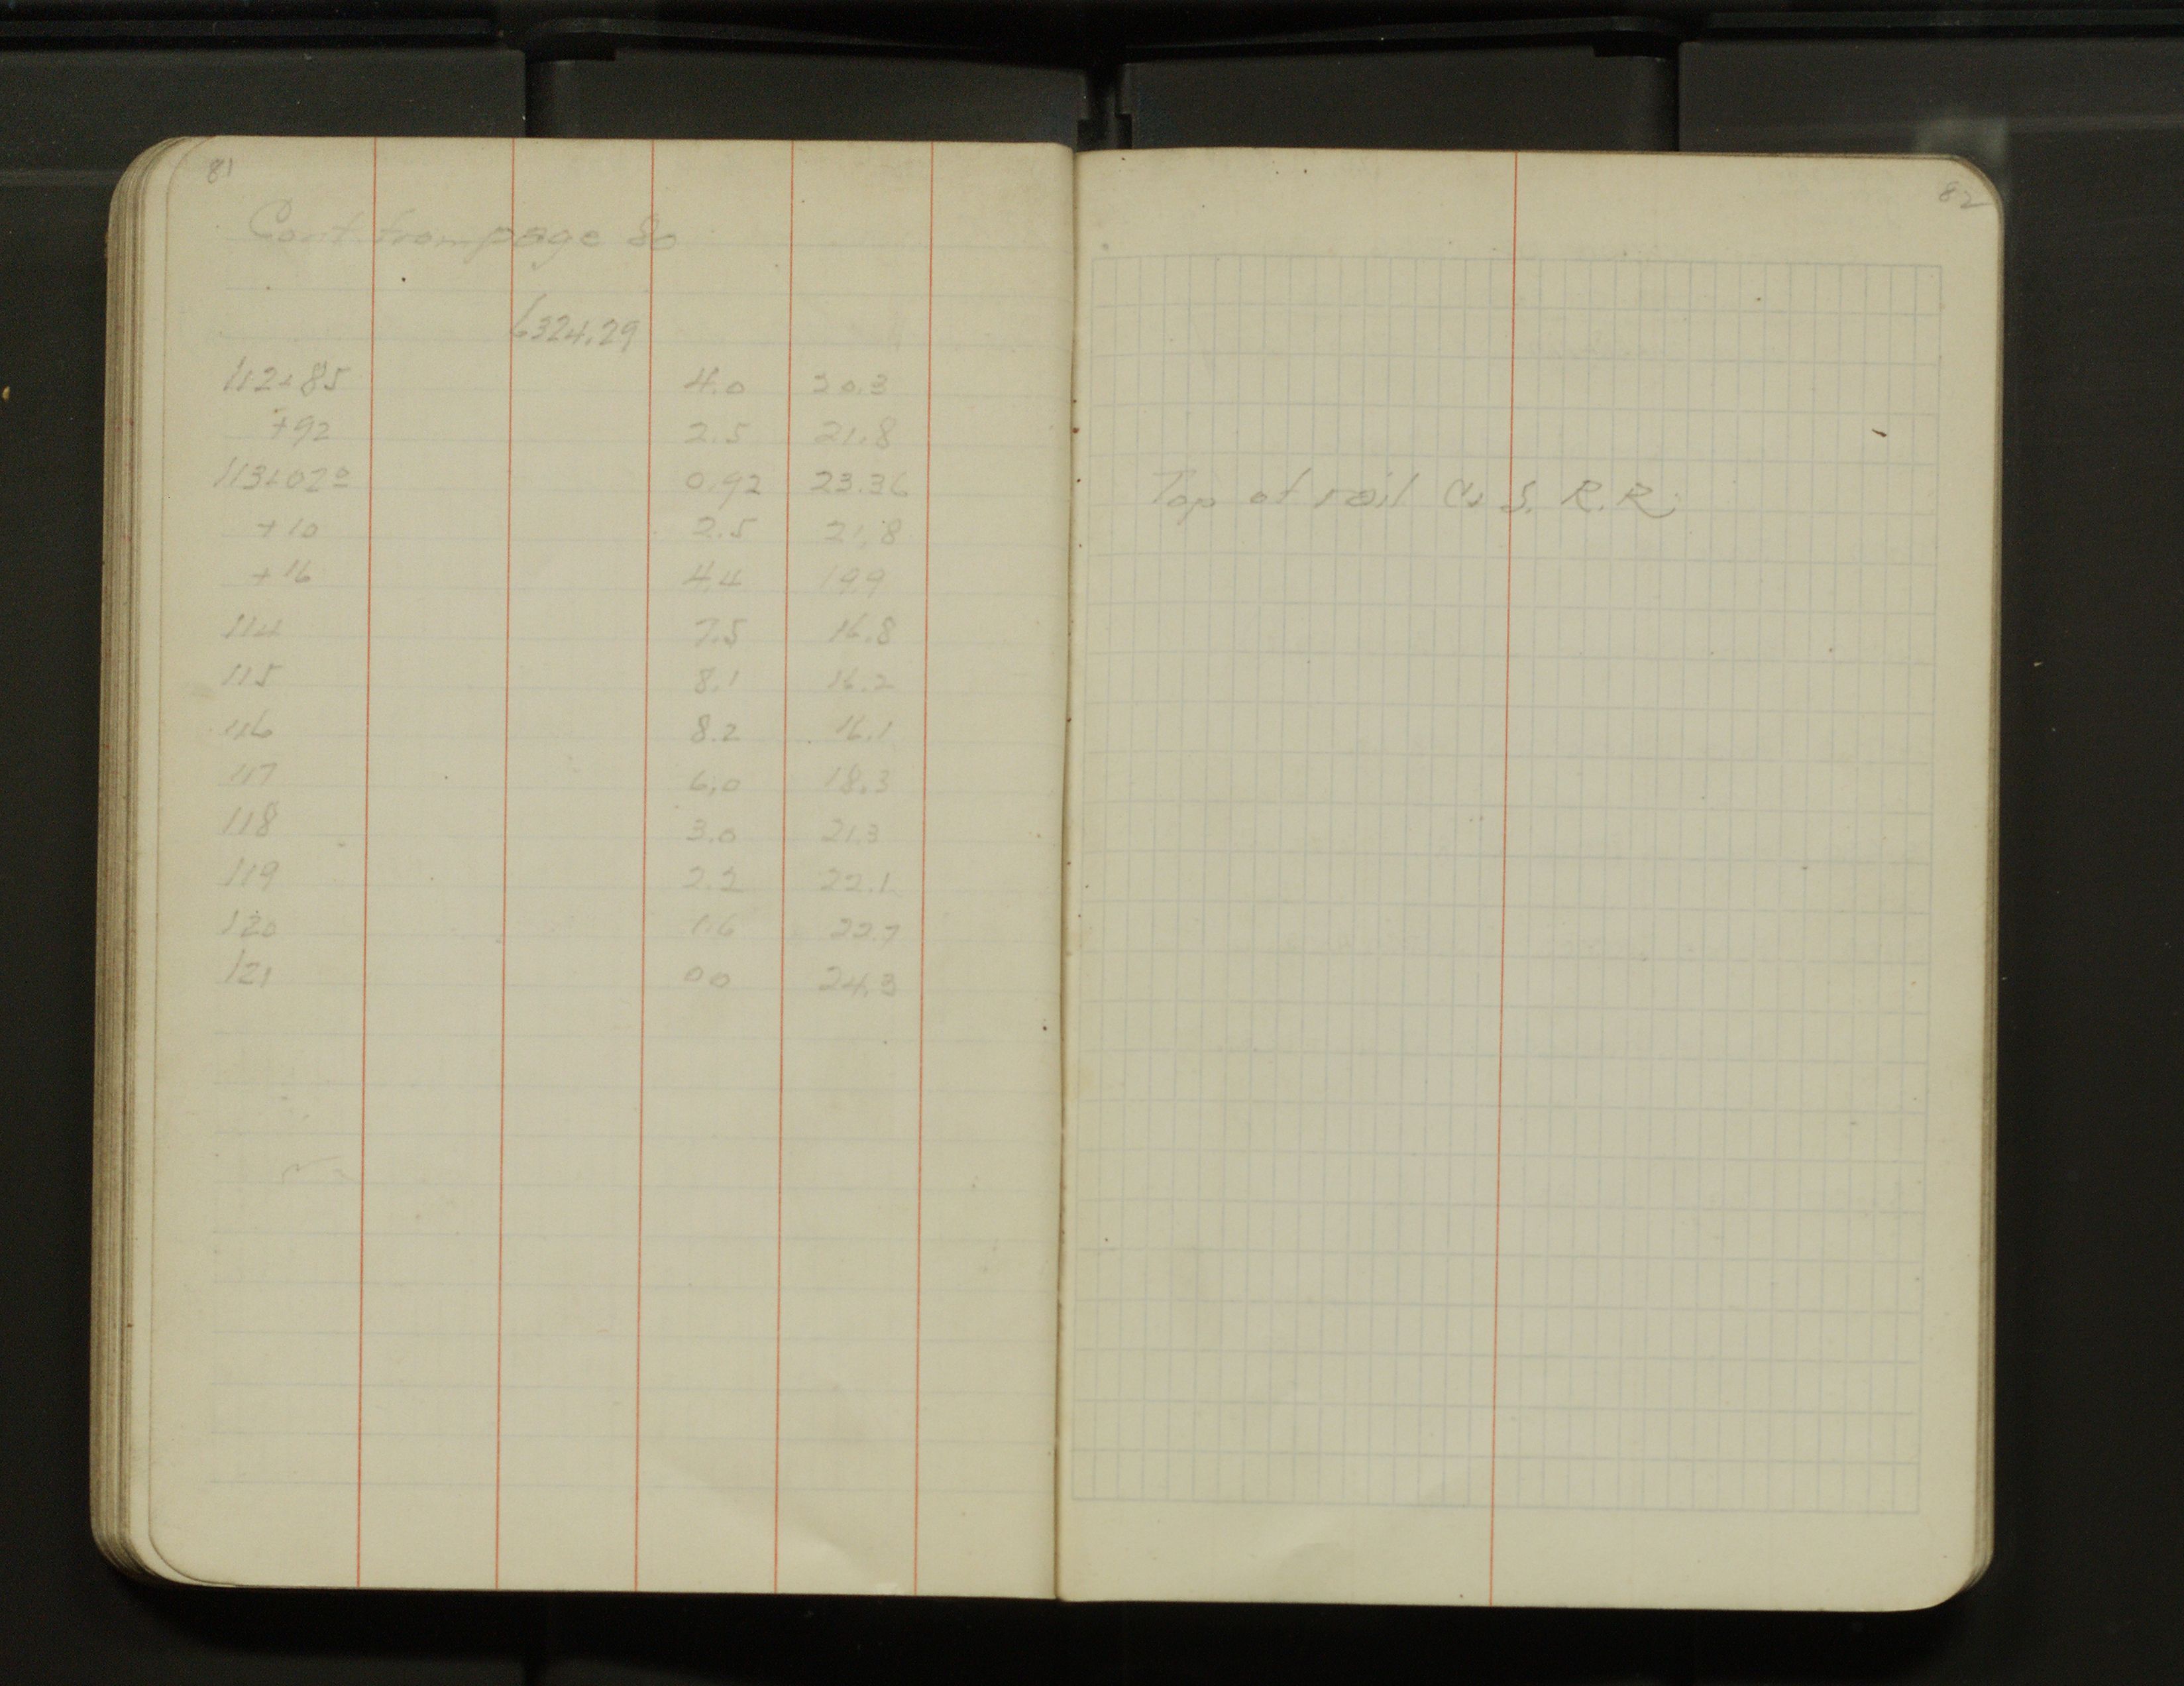 81
Cont from page 80
6324.29
112+85 4.0 20.3
+92 2.5 21.8
113+02º 0.92 23.36
+10 2.5 21.8
+16 4.4 19.9
114 7.5 16.8
115 8.1 16.2
116 8.2 16.1
117 6.0 18.3
118 3.0 21.3
119 2.2 22.1
120 1.6 22.7
121 00 24.3
82
Top of rail C. S. R.R.